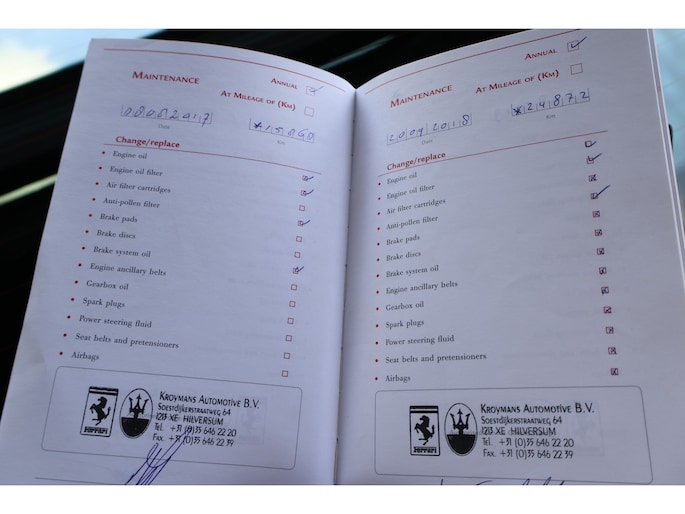 Annual
Maintenance
At Mileage of (Km)
Date
*15060
Km
Change/replace
• Engine oil
• Engine oil filter
• Air filter cartridges
• Anti-pollen filter
• Brake pads
• Brake discs
• Brake system oil
• Engine ancillary belts
• Gearbox oil
• Spark plugs
• Power steering fluid
• Seat belts and pretensioners
• Airbags
Ferrari
Kroymans Automotive B.V.
Soestdijkerstraatweg 64
1213 XE HILVERSUM
Tel. +31 (0)35 646 22 20
Fax. +31 (0)35 646 22 39
Annual
Maintenance
At Mileage of (Km)
20092018
Date
*24872
Km
Change/replace
• Engine oil
• Engine oil filter
• Air filter cartridges
• Anti-pollen filter
• Brake pads
• Brake discs
• Brake system oil
• Engine ancillary belts
• Gearbox oil
• Spark plugs
• Power steering fluid
• Seat belts and pretensioners
• Airbags
Ferrari
Kroymans Automotive B.V.
Soestdijkerstraatweg 64
1213 XE HILVERSUM
Tel. +31 (0)35 646 22 20
Fax. +31 (0)35 646 22 39